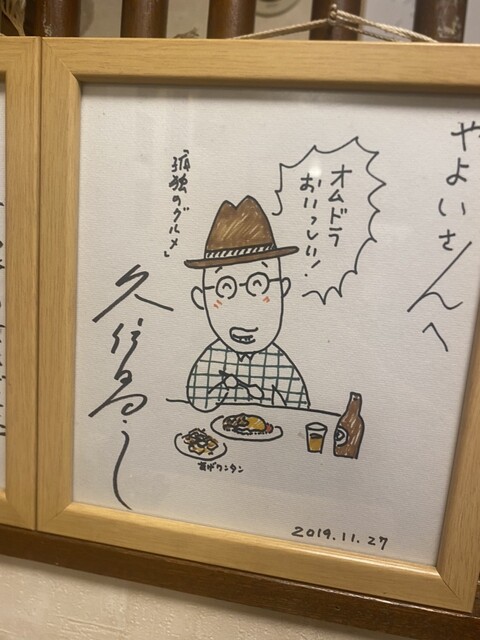 やよいさんへ
オムドラ
おいっしい!
『孤独のグルメ』
久住昌之
揚げワンタン
2019.11.27